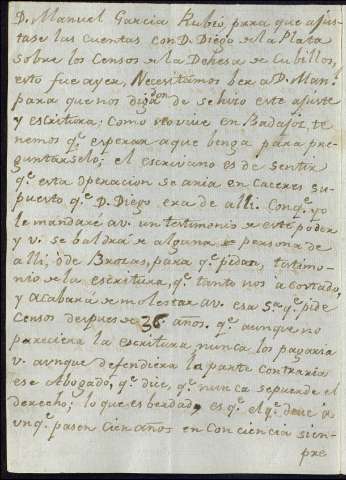 D. Manuel Garcia Rubio, para que ajus-
tase las cuentas con D. Diego de la Plata
sobre los Censos de la Dehesa de Cubillos,
esto fue ayer, Necesitamos ber a D. Man.l
para que nos diga donde se hizo este ajuste
y escritura; Como el vive en Badajoz, te
nemos q.e esperar a que benga para pre-
guntarselo; el escrivano es de sentir
q.e esta operacion se aria en Caceres su-
puesto q.e D. Diego era de alli. Conq.e yo
le mandaré a v. un testimonio de este poder
y v. se baldra de alguna persona de
alli, ó de Brozas, para q.e pidan, testimo-
nio de la escritura, q.e tanto nos á costado,
y acabará de molestar a v. esa S.a q.e pide
Censos despues de 36 años. q.e aunque no
pareciera la escritura nunca los pagaria
v. aunque defendiera la parte contraria
ese Abogado, q.e dice q.e nunca se pierde el
derecho; lo que es berdad, es q.e el q.e deve a
un q.e pasen cien años en Conciencia siem-
pre